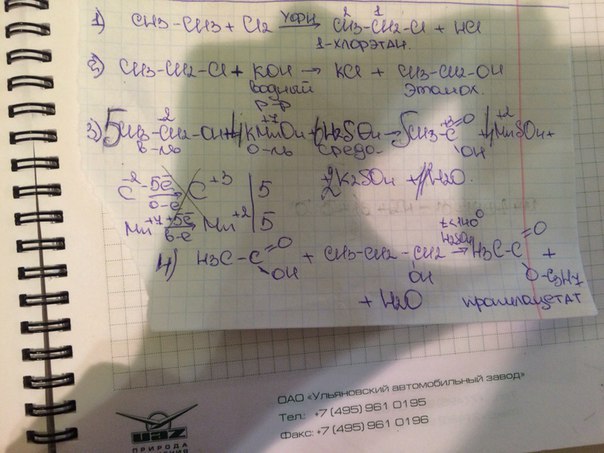 1) CH3-CH3 + Cl2 УФЛ→ ²CH3-¹CH2-Cl + HCl
1-хлорэтан.
2) CH3-CH2-Cl + KOH → KCl + CH3-CH2-OH
водный этанол.
р-р
3) 5CH3-CH2-OH + 4KMnO4 + 6H2SO4 → 5CH3-C=O OH + 4MnSO4 +
в-ль о-ль среда
2K2SO4 + 11H2O.
C⁻² -5e→ C⁺³ | 5
о-е
Mn⁺⁷ +5e→ Mn⁺² | 5
в-е
4) H3C-C=O OH + CH3-CH2-CH2 OH t<140° H2SO4→ H3C-C=O O-C3H7 +
+ H2O пропилацетат
ОАО «Ульяновский автомобильный завод»
Тел.: +7 (495) 961 0195
Факс: +7 (495) 961 0196
UAZ
ПРИРОДА